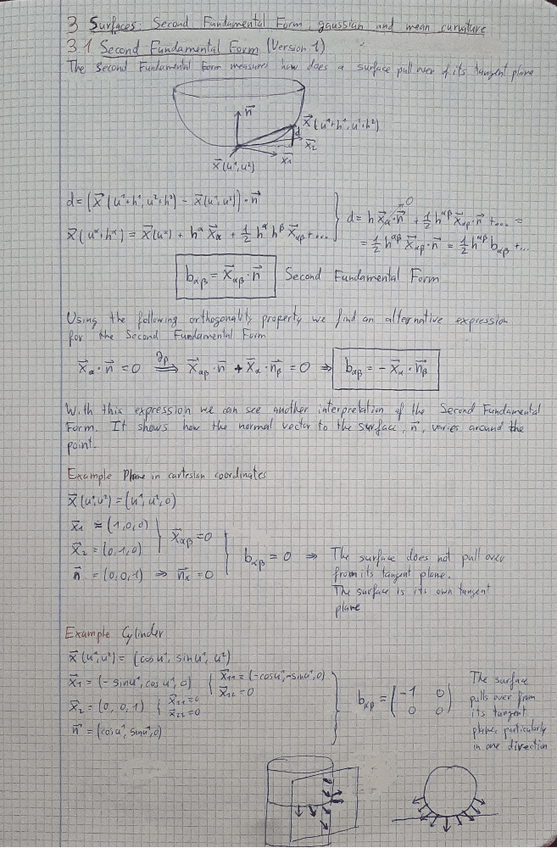 3 Surfaces. Second Fundamental Form, gaussian and mean curvature
3.1 Second Fundamental Form (Version 1)
The Second Fundamental Form measures how does a surface pull over of its tangent plane
n⃗
x⃗(u¹+h¹, u²+h²)
d
x⃗₂
x⃗₁
x⃗(u¹,u²)
d = (x⃗(u¹+h¹, u²+h²) - x⃗(u¹,u²))·n⃗
x⃗(uᵅ+hᵅ) = x⃗(uᵅ) + hᵅ x⃗α + ½ hᵅ hᵝ x⃗αβ + ...
d = h x⃗α·n⃗ + ½ hᵅᵝ x⃗αβ·n⃗ + ... =
0
= ½ hᵅᵝ x⃗αβ·n⃗ = ½ hᵅᵝ bαβ + ...
bαβ = x⃗αβ·n⃗ Second Fundamental Form
Using the following orthogonality property we find an alternative expression
for the Second Fundamental Form
x⃗α·n⃗ = 0 ⟹ x⃗αβ·n⃗ + x⃗α·n⃗β = 0 ⇒ bαβ = - x⃗α·n⃗β
∂β
With this expression we can see another interpretation of the Second Fundamental
Form. It shows how the normal vector to the surface, n⃗, varies around the
point.
Example Plane in cartesian coordinates
x⃗(u¹,u²) = (u¹,u²,0)
x⃗₁ = (1,0,0)
x⃗₂ = (0,1,0)
x⃗αβ = 0
n⃗ = (0,0,1) ⇒ n⃗α = 0
bαβ = 0 ⇒ The surface does not pull over
from its tangent plane.
The surface is its own tangent
plane
Example Cylinder
x⃗(u¹,u²) = (cosu¹, sinu¹, u²)
x⃗₁ = (-sinu¹, cosu¹, 0) x⃗₁₁ = (-cosu¹, -sinu¹, 0)
x⃗₁₂ = 0
x⃗₂ = (0,0,1) x⃗₂₁ = 0
x⃗₂₂ = 0
n⃗ = (cosu¹, sinu¹, 0)
bαβ = (-1 0
0 0)
The surface
pulls over from
its tangent
plane, particularly
in one direction